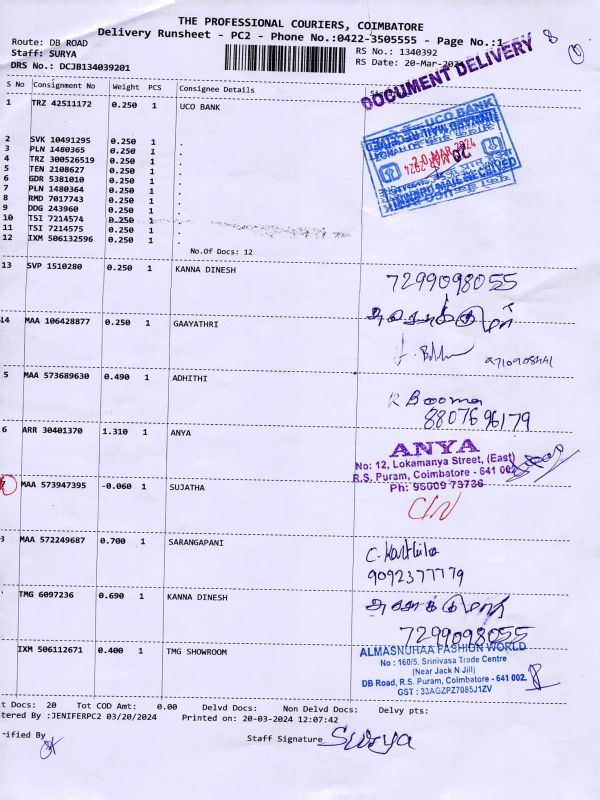 THE PROFESSIONAL COURIERS, COIMBATORE
Delivery Runsheet - PC2 - Phone No.:0422-3505555 - Page No.:1
8
Route: DB ROAD
Staff: SURYA
RS No.: 1340392
DRS No.: DCJB134039201
RS Date: 20-Mar-2024
DOCUMENT DELIVERY
S No Consignment No Weight PCS Consignee Details
1 TRZ 42511172 0.250 1 UCO BANK
UCO BANK
20 MAR 2024
2 SVK 10491295 0.250 1 .
3 PLN 1480365 0.250 1 .
4 TRZ 300526519 0.250 1 .
5 TEN 2108627 0.250 1 .
6 GDR 5381010 0.250 1 .
7 PLN 1480364 0.250 1 .
8 RMD 7017743 0.250 1 .
9 DDG 243960 0.250 1 .
10 TSI 7214574 0.250 1 .
11 TSI 7214575 0.250 1 .
12 IXM 506132596 0.250 1 .
No.Of Docs: 12
13 SVP 1510280 0.250 1 KANNA DINESH
7299098055
14 MAA 106428877 0.250 1 GAAYATHRI
9710908441
5 MAA 573689630 0.490 1 ADHITHI
R Booma
8807696179
6 ARR 30401370 1.310 1 ANYA
ANYA
No: 12, Lokamanya Street, (East)
R.S. Puram, Coimbatore - 641 002
Ph: 98009 73736
7 MAA 573947395 -0.060 1 SUJATHA
C/N
3 MAA 572249687 0.700 1 SARANGAPANI
C. Karthika
9092377779
TMG 6097236 0.690 1 KANNA DINESH
7299098055
IXM 506112671 0.400 1 TMG SHOWROOM
ALMASNUHAA FASHION WORLD
No : 160/5. Srinivasa Trade Centre
(Near Jack N Jill)
DB Road, R.S. Puram, Coimbatore - 641 002.
GST : 33AGZPZ7085J1ZV
t Docs: 20 Tot COD Amt: 0.00 Delvd Docs: Non Delvd Docs: Delvy pts:
tered By :JENIFERPC2 03/20/2024 Printed on: 20-03-2024 12:07:42
rified By
Staff Signature Surya